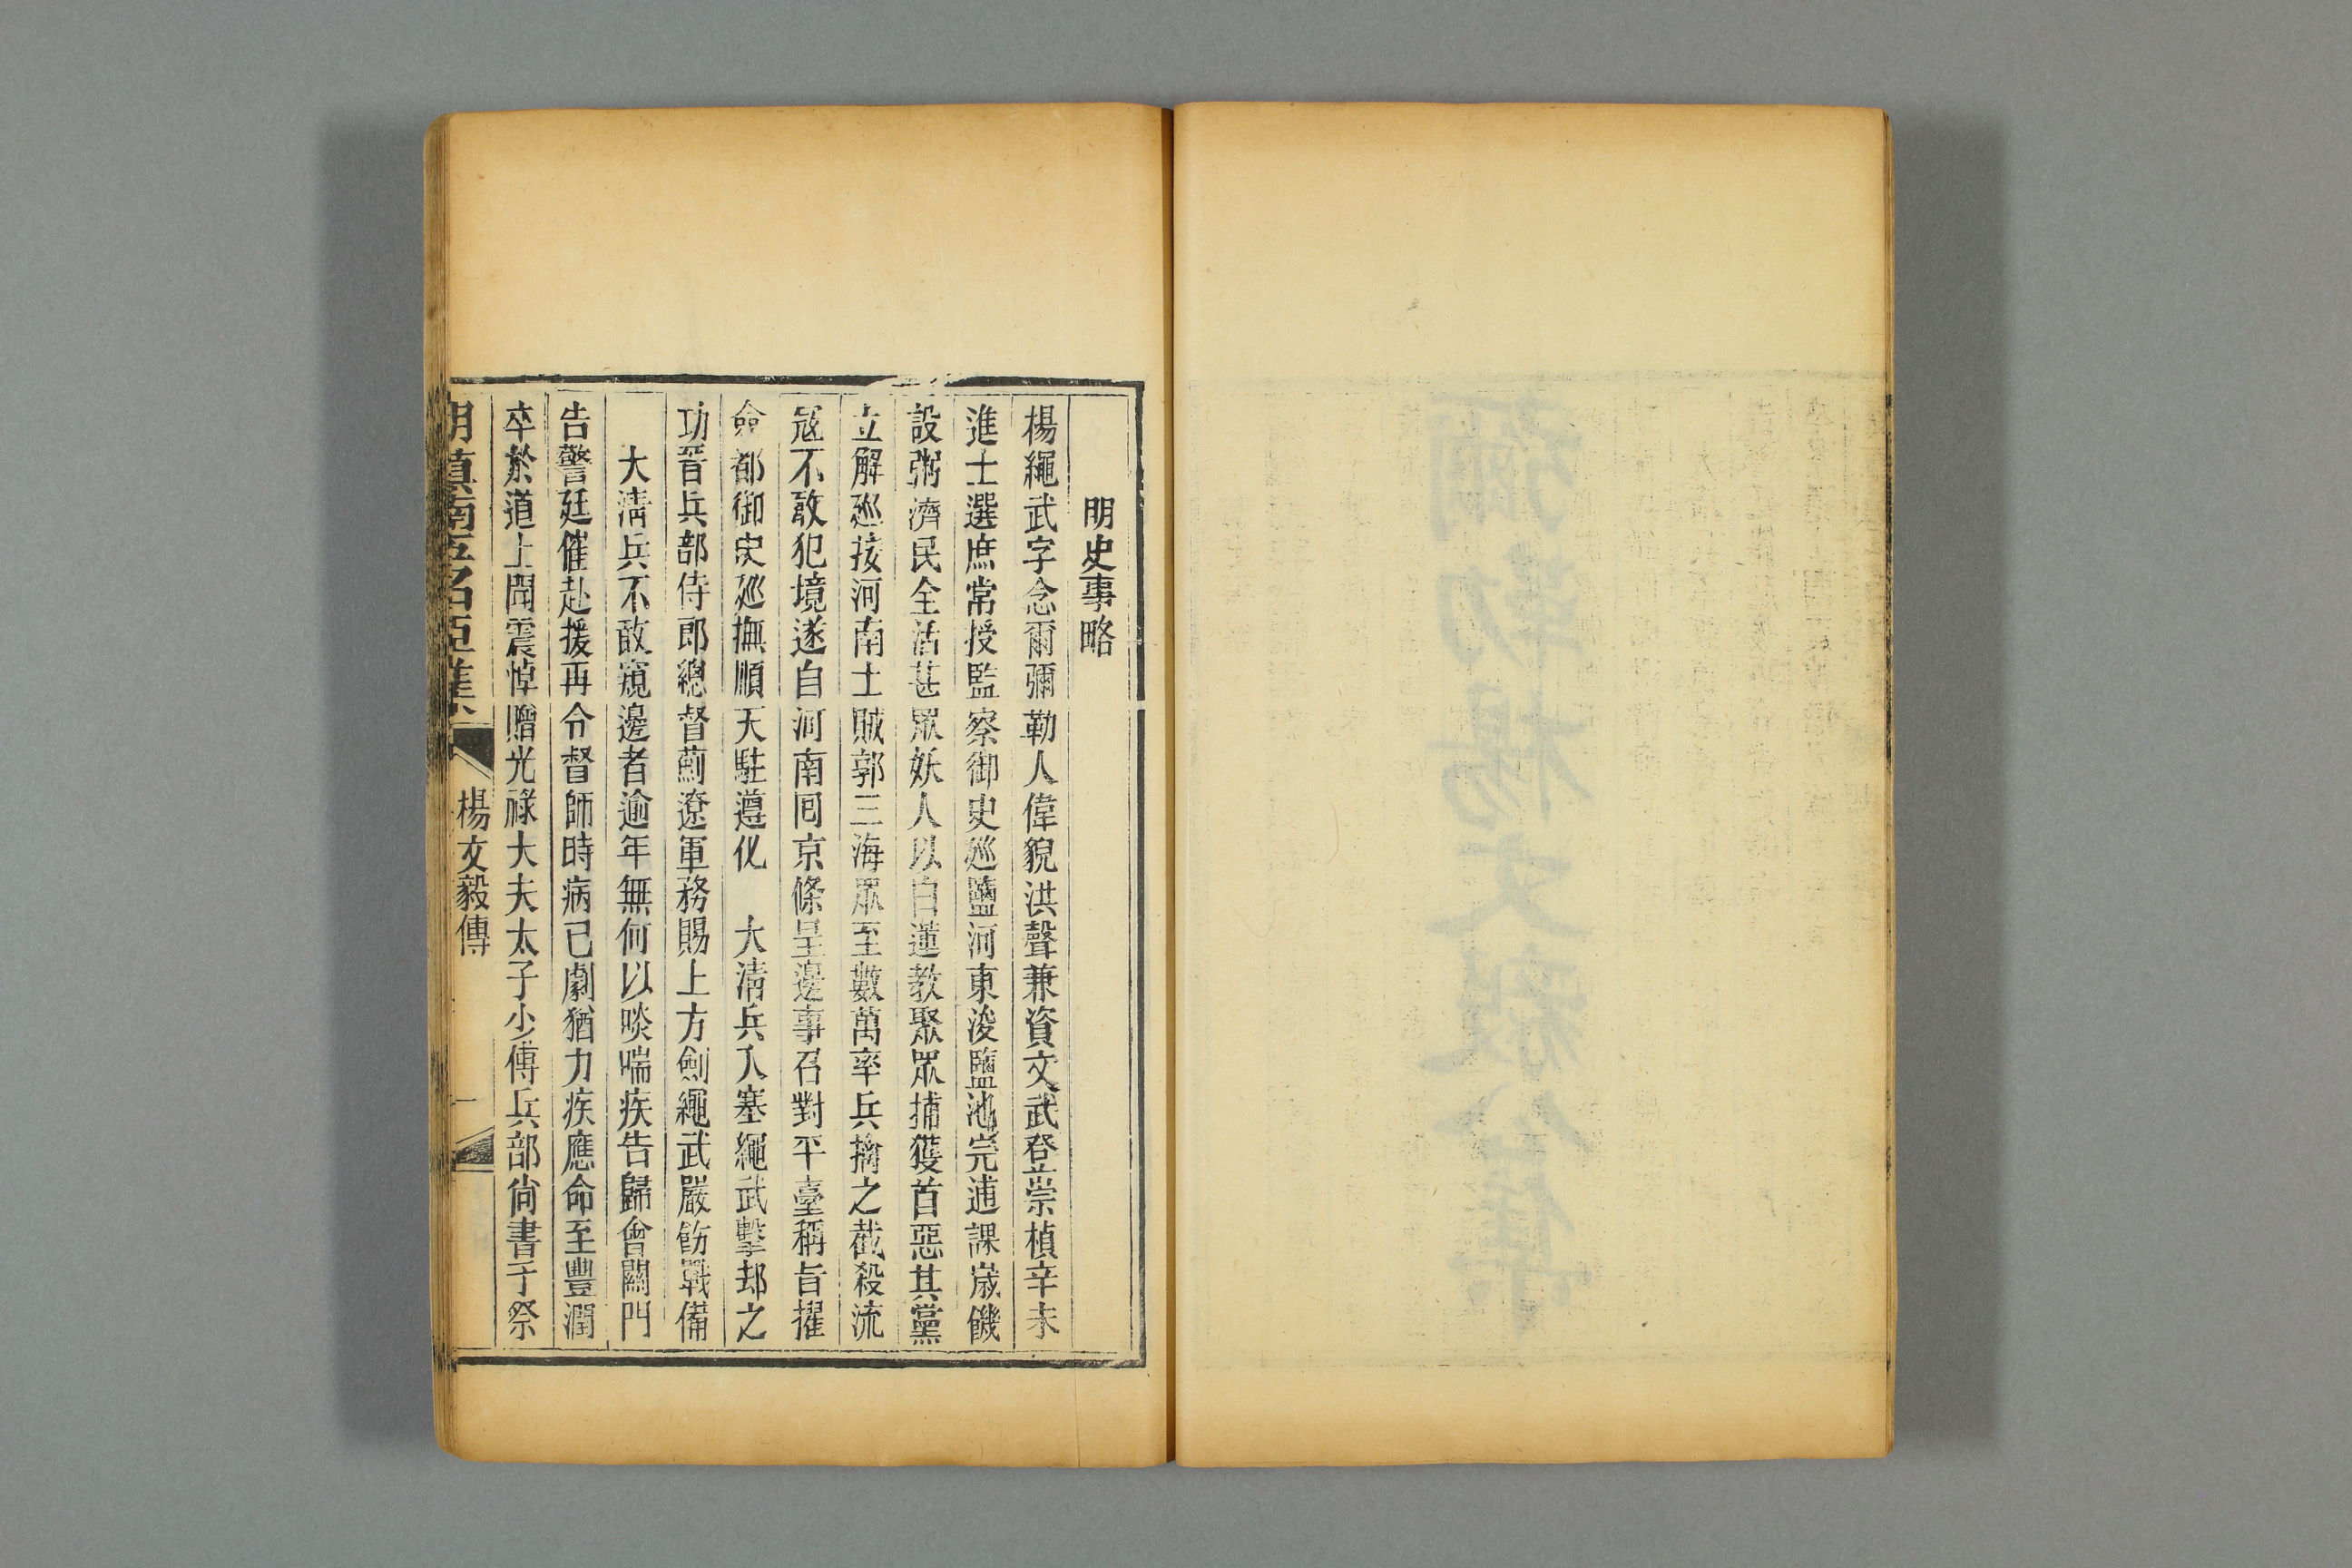 明史事略
楊繩武字念爾彌勒人偉貌洪聲兼資文武登崇楨辛未
進士選庶常授監察御史廵鹽河東浚鹽池完逋課嵗饑
設粥濟民全活甚眾妖人以白蓮教聚眾捕獲首惡其黨
立解廵按河南土賊郭三海眾至數萬率兵擒之截殺流
冦不敢犯境遂自河南囘京條呈邊事召對平臺稱旨擢
僉都御史廵撫順天駐遵化　大淸兵入塞繩武擊却之
功晋兵部侍郎總督薊遼軍務賜上方劍繩武嚴飭戰備
大淸兵不敢窺邊者逾年無何以啖喘疾告歸會關門
告警廷催赴援再令督師時病已劇猶力疾應命至豐潤
卒於道上聞震悼贈光祿大夫太子少傅兵部尙書予祭
明滇南五名臣集
楊文毅傳
一
彌勒楊文毅公傳